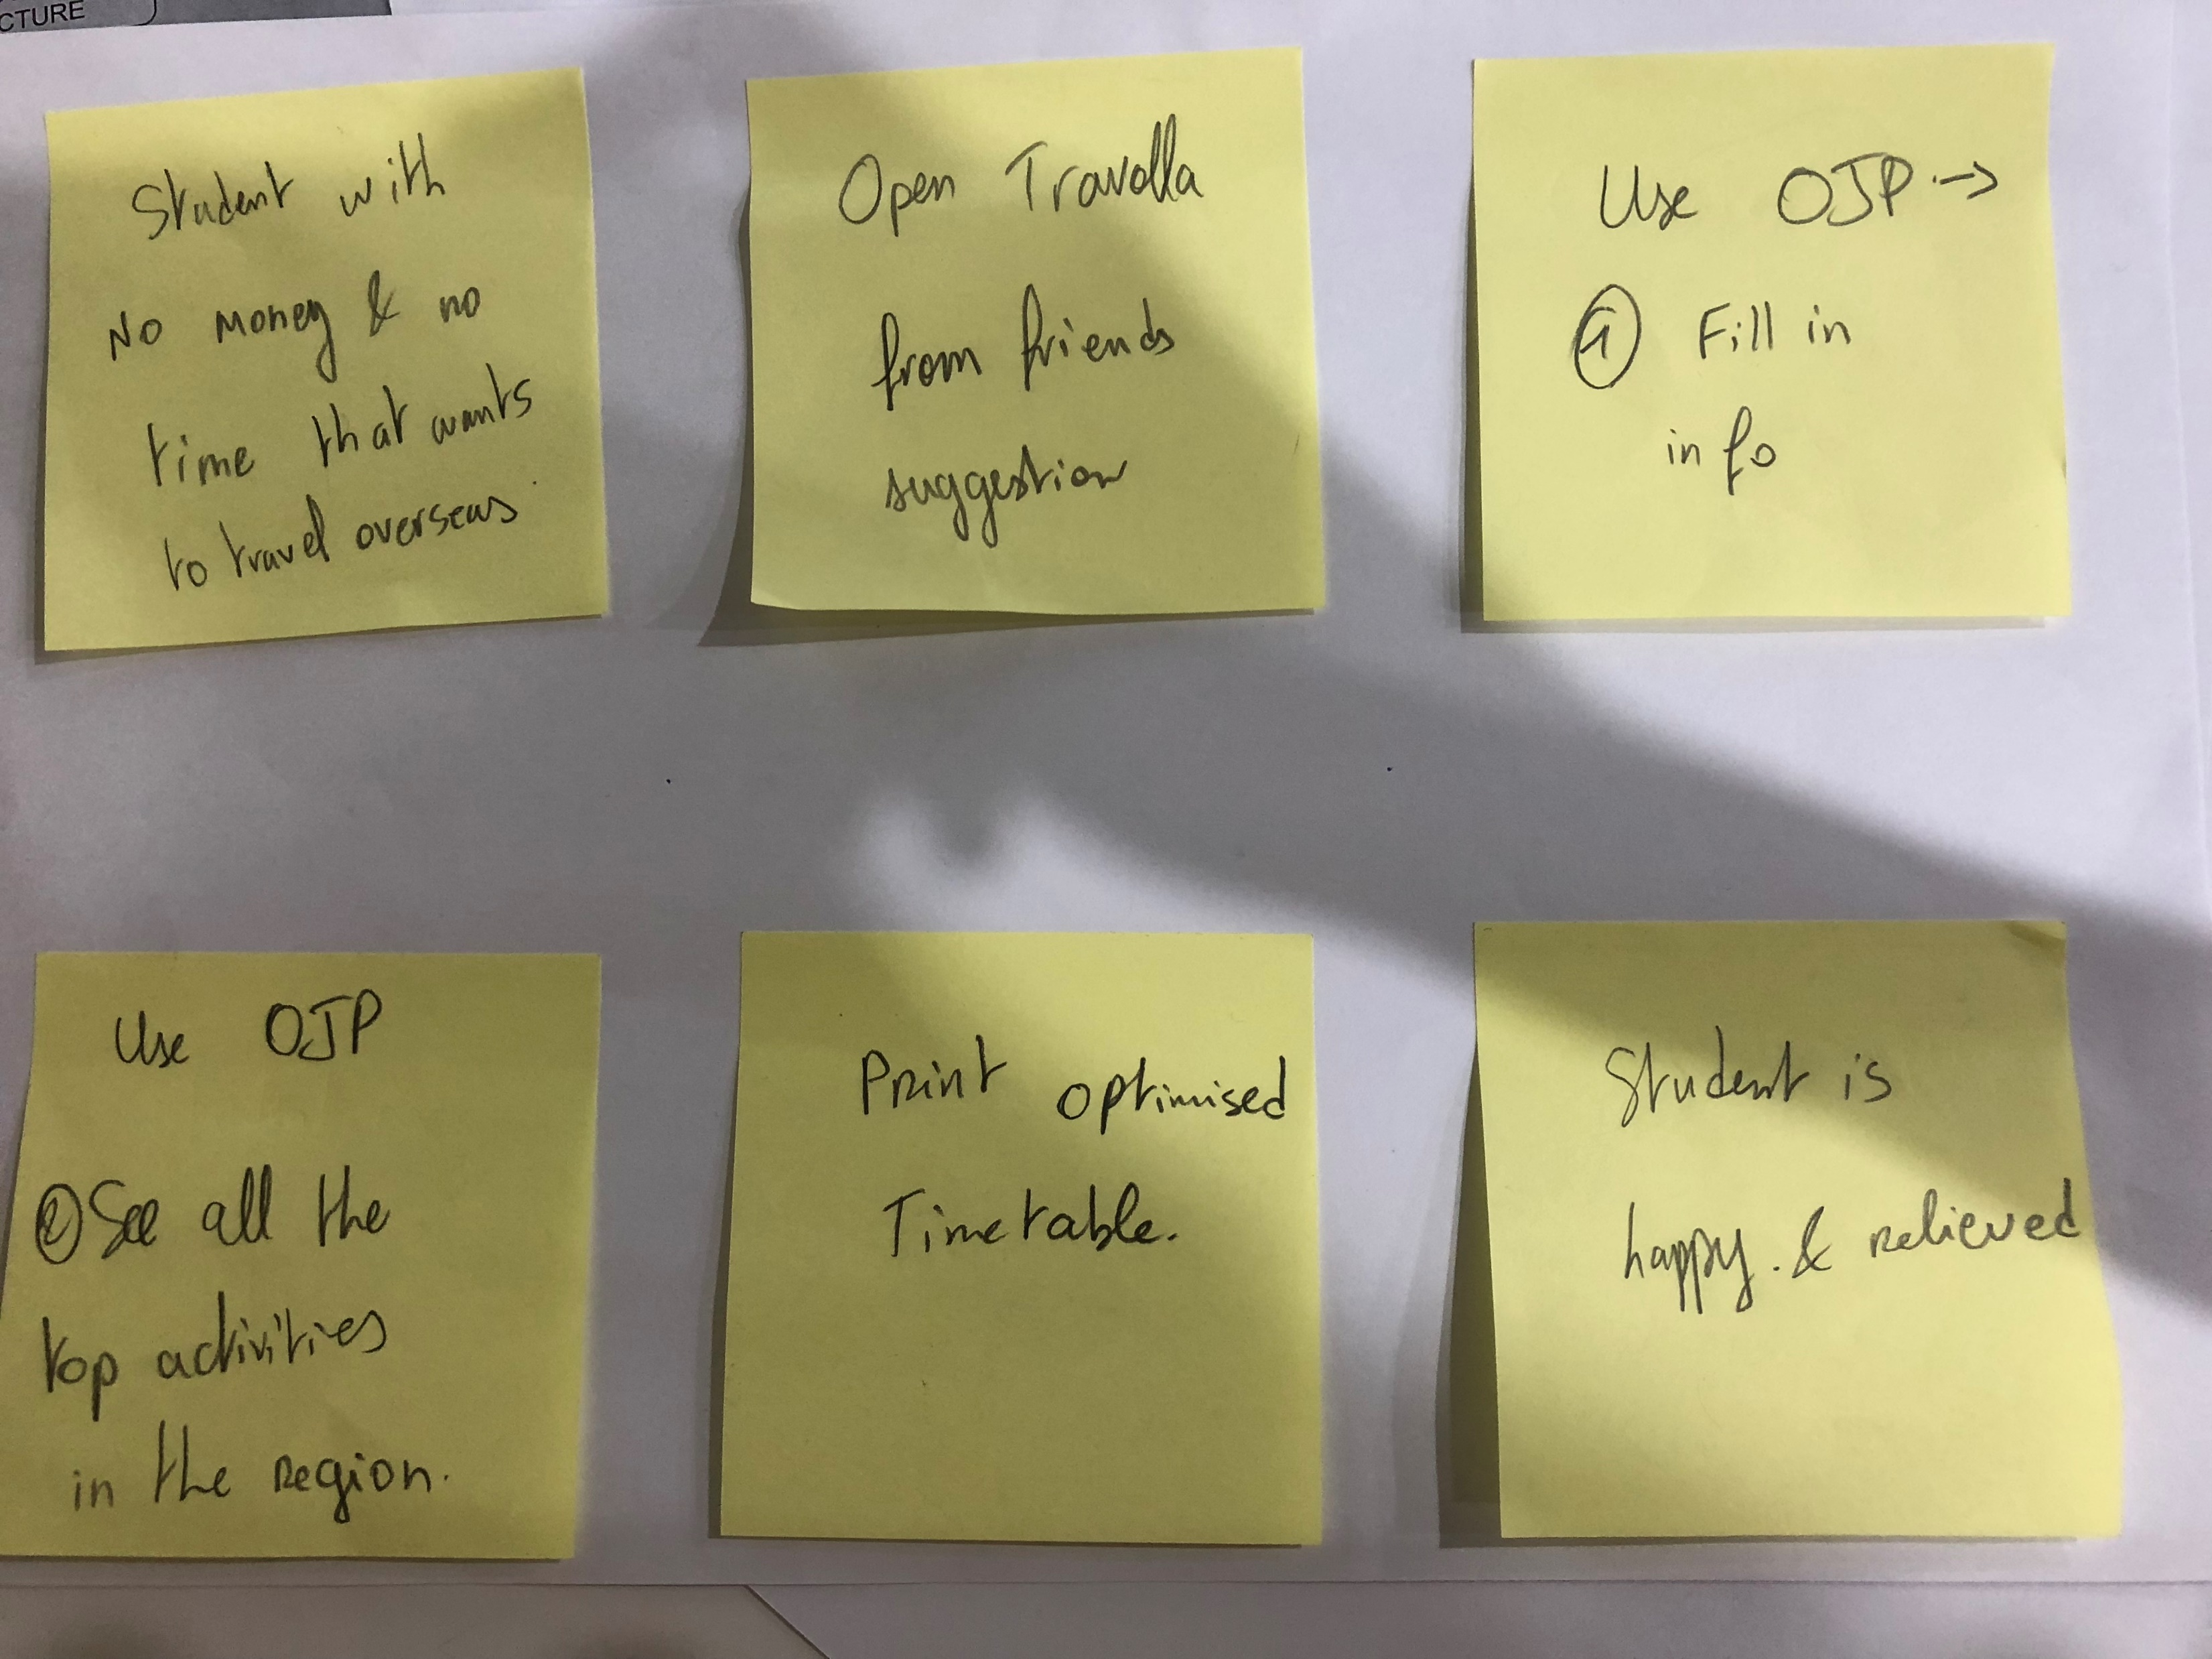 CTURE
Student with
No money & no
time that wants
to travel overseas
Open Travolla
from friends
suggestion
Use OJP →
① Fill in
info
Use OJP
② See all the
top activities
in the region.
Print optimised
Timetable.
Student is
happy. & relieved